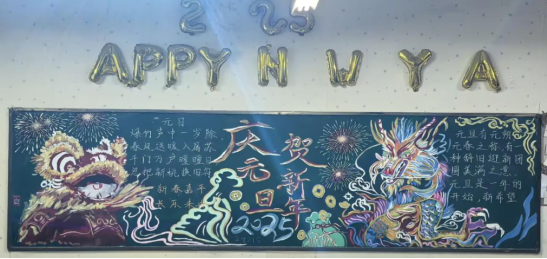 2 25
APPY N W Y A
元日
爆竹声中一岁除
春风送暖入屠苏
千门万户曈曈日
总把新桃换旧符
新春嘉平
长乐未央
庆元旦
贺新年
2025
元旦有元朔
元春之称,有一
种辞旧迎新团
圆美满之意
元旦是一年的
开始,新希望